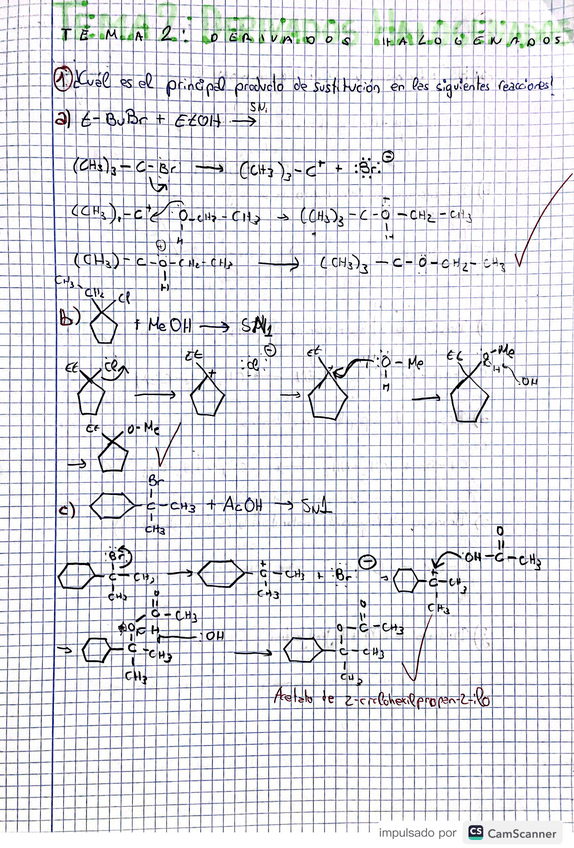 TEMA 2: DERIVADOS HALOGENADOS
① ¿Cuál es el principal producto de sustitución en las siguientes reacciones?
a) t-BuBr + EtOH → SN1
(CH3)3-C-Br → (CH3)3-C+ + :Br: ⊖
(CH3)3-C+ O-CH2-CH3 → (CH3)3-C-O-CH2-CH3
H H
(CH3)-C-O-CH2-CH3 → (CH3)3-C-O-CH2-CH3
H
CH3-CH2 Cl
b) + MeOH → SN1
Et Cl → Et + :Cl: ⊖ → Et + :O-Me → Et O-Me
H H :OH
→ Et O-Me
Br
c) -C-CH3 + AcOH → SN1
CH3
Br O
-C-CH3 → -C-CH3 + :Br: ⊖ → -C-CH3 :OH-C-CH3
CH3 CH3 CH3
O O
C-CH3 O-C-CH3
:OH
→ -C-CH3 → -C-CH3
CH3 CH3
Acetato de 2-ciclohexilpropan-2-ilo
impulsado por CS CamScanner